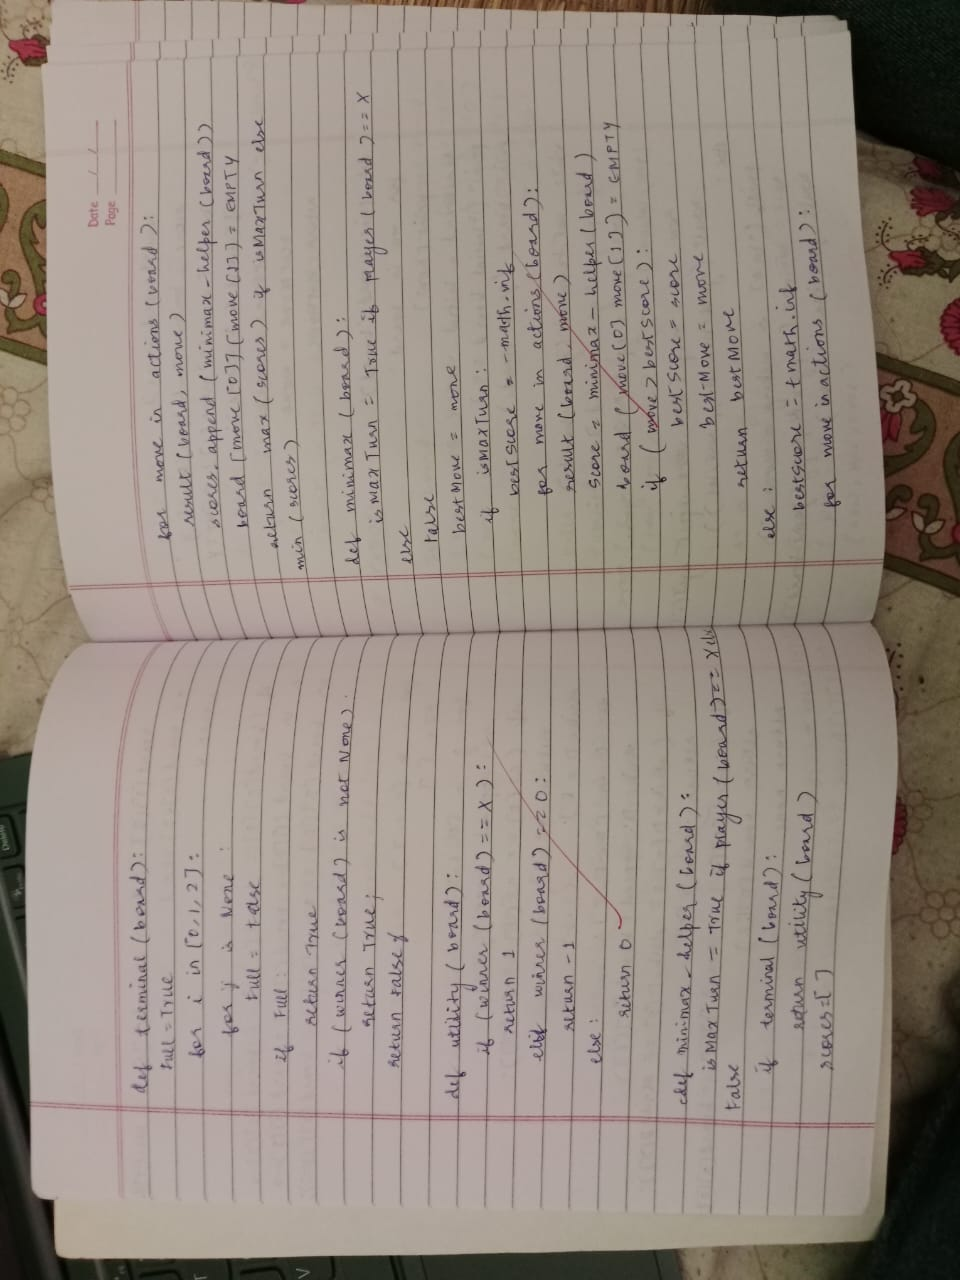 def terminal (board):
full = True
for i in [0,1,2]:
for j is None:
full = false
if full:
return True
if (winner (board) is not None).
return True;
return false;
def utility (board):
if (winner (board) == X):
return 1
elif winner (board) == O:
return -1
else:
return 0
def minimax-helper (board):
is Max Turn = True if player (board) == X els
false
if terminal (board):
return utility (board)
scores=[ ]
Date __/__/__
Page
for move in actions (board):
result (board, move)
scores. append (minimax-helper (board))
board [move [0]] [move [1]] = EMPTY
return max (scores) if isMaxTurn else
min (scores)
def minimax (board):
is Max Turn = True if player (board) == X
else
false
best Move = none
if isMaxTurn:
best Score = -math.inf
for move in actions (board):
result (board, move)
score = minimax-helper (board)
board (move [0] move [1]) = EMPTY
if (move > best score):
best score = score
best-Move = move
return best Move
else:
best score = +math.inf
for move in actions (board):
Delete